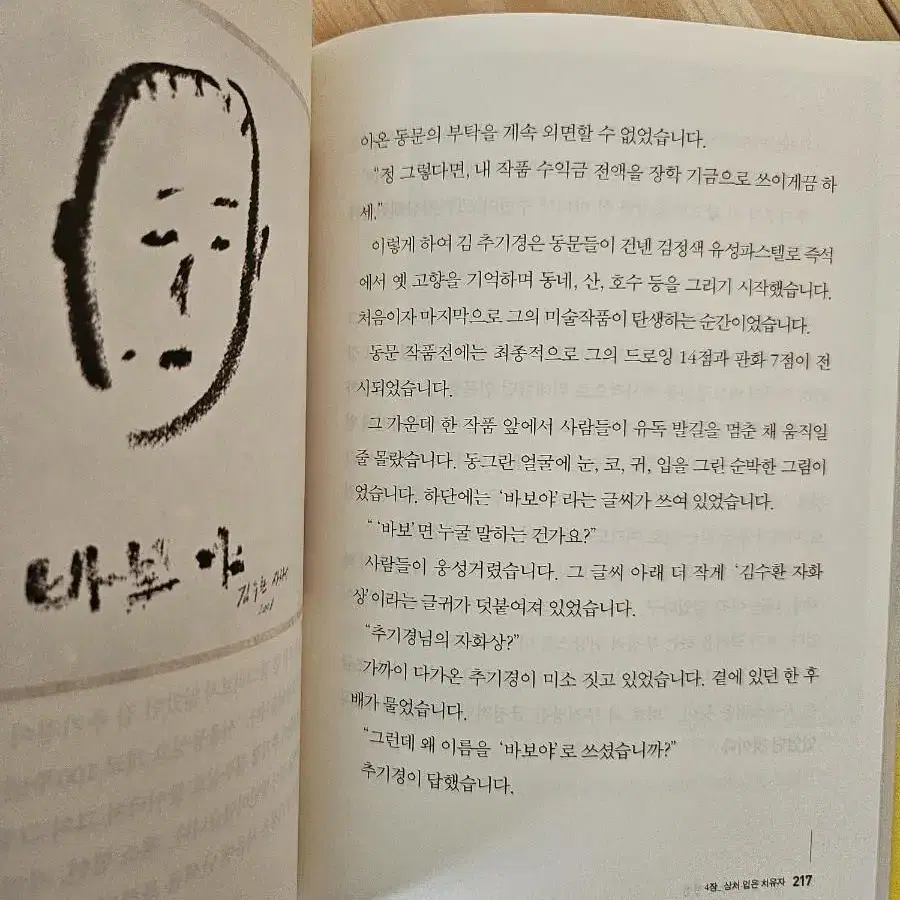 바보야
김수환 자화상
2007
아온 동문의 부탁을 계속 외면할 수 없었습니다.
“정 그렇다면, 내 작품 수익금 전액을 장학 기금으로 쓰이게끔 하
세.”
이렇게 하여 김 추기경은 동문들이 건넨 검정색 유성파스텔로 즉석
에서 옛 고향을 기억하며 동네, 산, 호수 등을 그리기 시작했습니다.
처음이자 마지막으로 그의 미술작품이 탄생하는 순간이었습니다.
동문 작품전에는 최종적으로 그의 드로잉 14점과 판화 7점이 전
시되었습니다.
그 가운데 한 작품 앞에서 사람들이 유독 발길을 멈춘 채 움직일
줄 몰랐습니다. 동그란 얼굴에 눈, 코, 귀, 입을 그린 순박한 그림이
었습니다. 하단에는 ‘바보야’라는 글씨가 쓰여 있었습니다.
“ ‘바보’면 누굴 말하는 건가요?”
사람들이 웅성거렸습니다. 그 글씨 아래 더 작게 ‘김수환 자화
상’이라는 글귀가 덧붙여져 있었습니다.
“추기경님의 자화상?”
가까이 다가온 추기경이 미소 짓고 있었습니다. 곁에 있던 한 후
배가 물었습니다.
“그런데 왜 이름을 ‘바보야’로 쓰셨습니까?”
추기경이 답했습니다.
4장_ 상처 입은 치유자 217